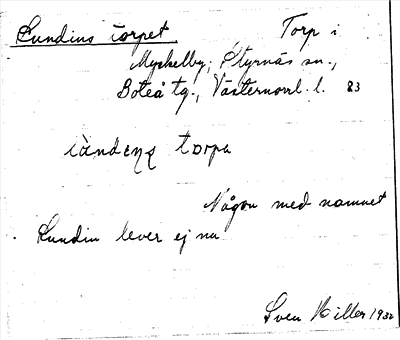 Lundins torpet Torp i
Myckelby, Styrnäs sn.,
Boteå tg., Västernorrl. l. 83
torpa
Någon med namnet
Lundin lever ej nu
Sven